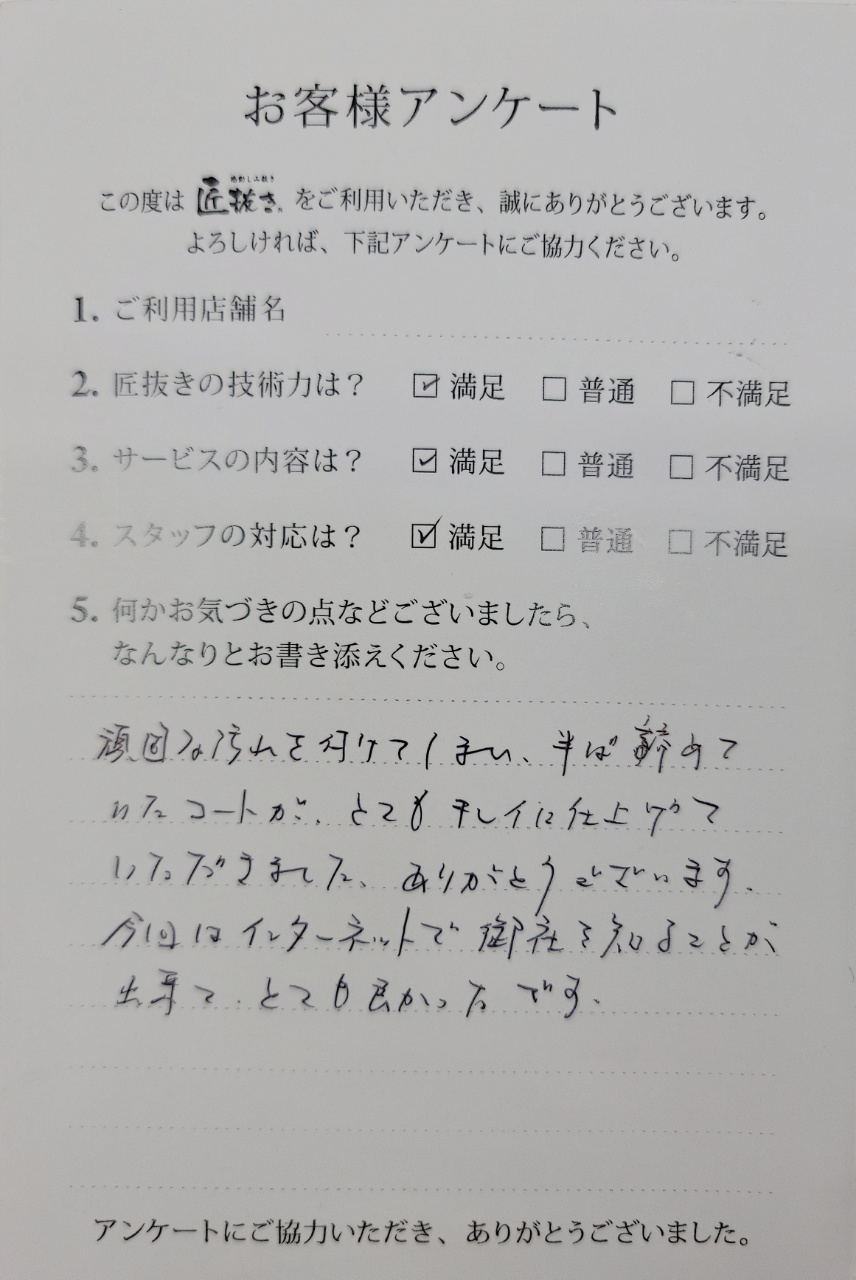 お客様アンケート
感動しみ抜き
この度は 匠抜き をご利用いただき、誠にありがとうございます。
よろしければ、下記アンケートにご協力ください。
1. ご利用店舗名
2. 匠抜きの技術力は? ☑ 満足 □ 普通 □ 不満足
3. サービスの内容は? ☑ 満足 □ 普通 □ 不満足
4. スタッフの対応は? ☑ 満足 □ 普通 □ 不満足
5. 何かお気づきの点などございましたら、
なんなりとお書き添えください。
頑固な汚れを付けてしまい、半ば諦めて
いたコートが、とてもキレイに仕上げて
いただきました、ありがとうございます。
今回はインターネットで御社を知ることが
出来て、とても良かったです。
アンケートにご協力いただき、ありがとうございました。